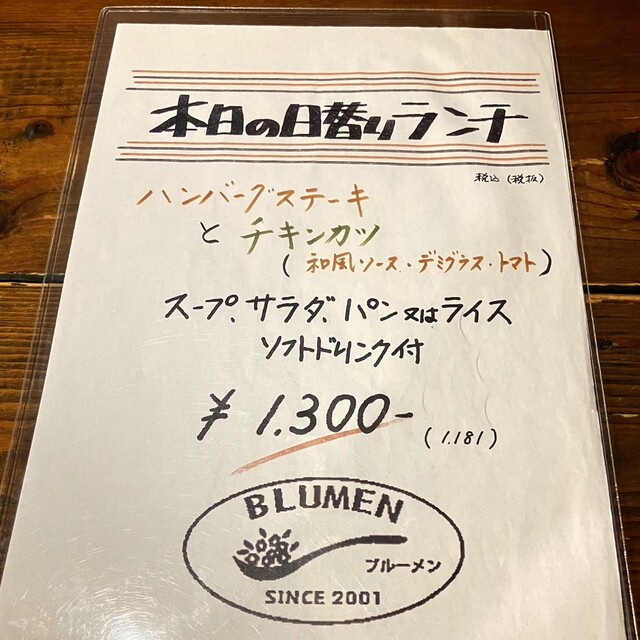 本日の日替りランチ
税込(税抜)
ハンバーグステーキ
と チキンカツ
(和風ソース・デミグラス・トマト)
スープ、サラダ、パン又はライス
ソフトドリンク付
¥1.300-
(1.181)
BLUMEN
ブルーメン
SINCE 2001